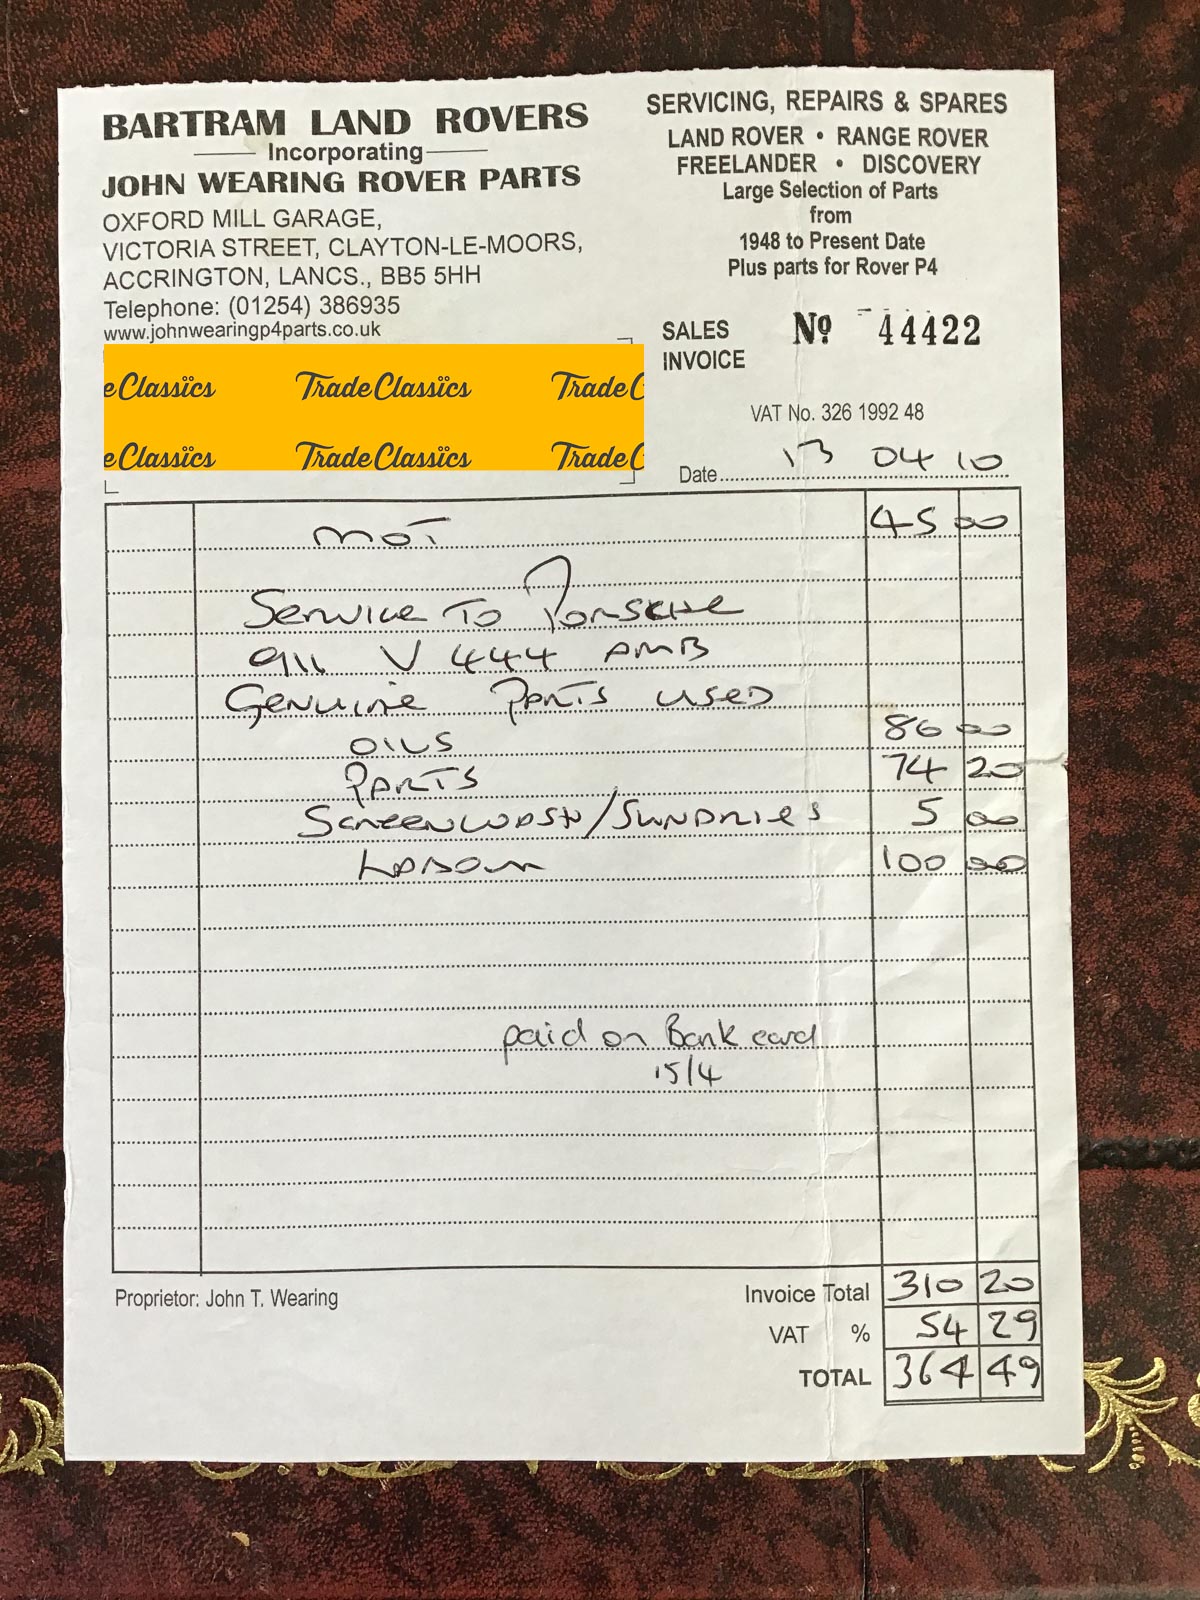 BARTRAM LAND ROVERS
Incorporating
JOHN WEARING ROVER PARTS
OXFORD MILL GARAGE,
VICTORIA STREET, CLAYTON-LE-MOORS,
ACCRINGTON, LANCS., BB5 5HH
Telephone: (01254) 386935
www.johnwearingp4parts.co.uk
SERVICING, REPAIRS & SPARES
LAND ROVER • RANGE ROVER
FREELANDER • DISCOVERY
Large Selection of Parts
from
1948 to Present Date
Plus parts for Rover P4
SALES INVOICE
Nº 44422
VAT No. 326 1992 48
e Classics Trade Classics Trade C
e Classics Trade Classics Trade C
Date 13 04 10
MOT 45 00
Service To Porsche
911 V 444 AMB
Genuine Parts used
OILS 86 00
PARTS 74 20
Screenwash/Sundries 5 00
Labour 100 00
paid on Bank card
15/4
Proprietor: John T. Wearing
Invoice Total 310 20
VAT % 54 29
TOTAL 364 49